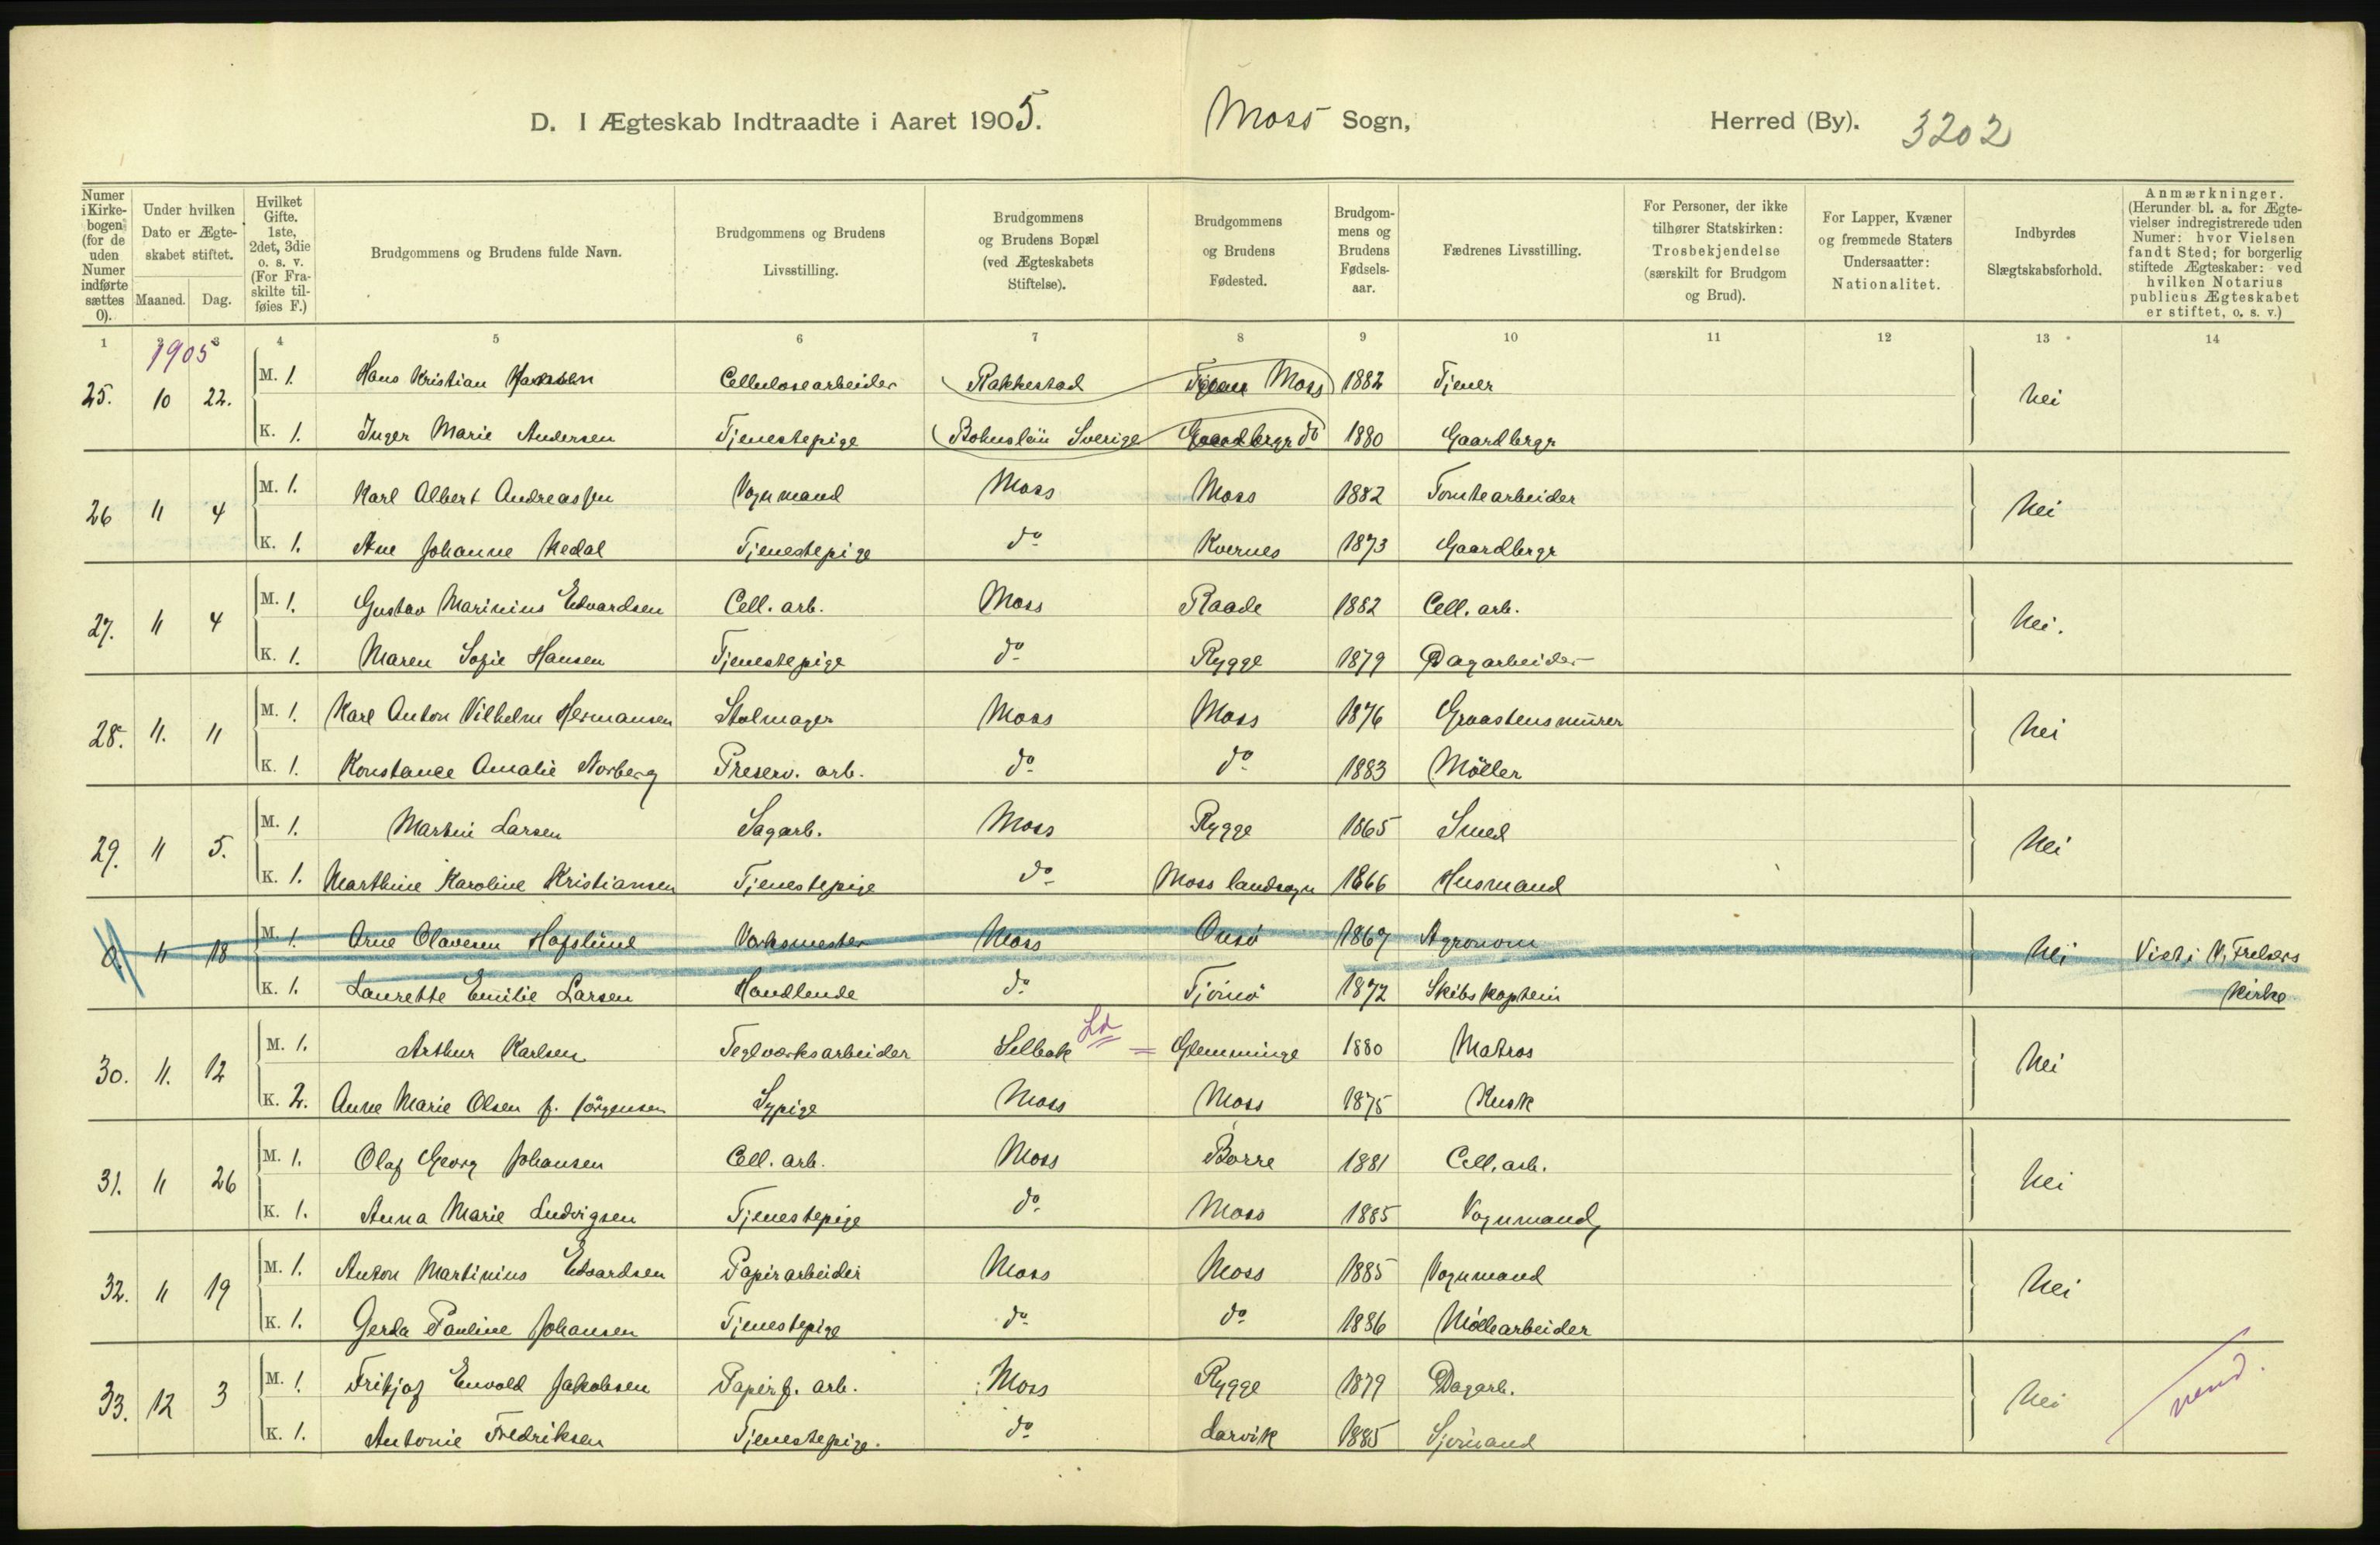 D. I Ægteskab Indtraadte i Aaret 1905. Moss Sogn, Herred (By). 3202
Numer i Kirkebogen (for de uden Numer indførte sættes 0).
Under hvilken Dato er Ægteskabet stiftet.
Maaned. Dag.
Hvilket Gifte. 1ste, 2det, 3die o. s. v. (For Fraskilte tilføies F.)
Brudgommens og Brudens fulde Navn.
Brudgommens og Brudens Livsstilling.
Brudgommens og Brudens Bopæl (ved Ægteskabets Stiftelse).
Brudgommens og Brudens Fødested.
Brudgommens og Brudens Fødselsaar.
Fædrenes Livsstilling.
For Personer, der ikke tilhører Statskirken: Trosbekjendelse (særskilt for Brudgom og Brud).
For Lapper, Kvæner og fremmede Staters Undersaatter: Nationalitet.
Indbyrdes Slægtskabsforhold.
Anmærkninger. (Herunder bl. a. for Ægtevielser indregistrerede uden Numer: hvor Vielsen fandt Sted; for borgerlig stiftede Ægteskaber: ved hvilken Notarius publicus Ægteskabet er stiftet, o. s. v.)
1 2 3 4 5 6 7 8 9 10 11 12 13 14
1905
25. 10 22. M. 1. Hans Kristian Cellulosearbeider Rakkestad Moss 1882 Tjener nei
K. 1. Inger Marie Andersen Tjenestepige Bohuslän Sverige do 1880 Gaardbrgr
26 11 4 M. 1. Karl Albert Andreassen Vognmand Moss Moss 1882 Tomtearbeider nei
K. 1. Ane Johanne Nedal Tjenestepige do Kvernes 1873 Gaardbrgr
27. 11 4 M. 1. Gustav Marinius Edvardsen Cell. arb. Moss Raade 1882 Cell. arb. nei.
K. 1. Maren Sofie Hansen Tjenestepige do Rygge 1879 Dagarbeider
28. 11. 11 M. 1. Karl Anton Vilhelm Hermansen Stolmager Moss Moss 1876 Graastensmurer nei
K. 1. Konstance Amalie Norberg Preserv. arb. do do 1883 Möller
29. 11 5. M. 1. Martin Larsen Sagarb. Moss Rygge 1865 Smed nei
K. 1. Marthine Karoline Kristiansen Tjenestepige do Moss landsogn 1866 Husmand
0. 11 18 M. 1. Arne Olavesen Hafslund Værksmester Moss Onsö 1867 Agronom nei Viet i V. Frelsers
K. 1. Laurette Emilie Larsen Handlende do Tjömö 1872 Skibskaptein kirke
30. 11. 12 M. 1. Arthur Karlsen Teglværksarbeider Selbak Ld = Glemminge 1880 Matros nei
K. 2. Anne Marie Olsen f. Jörgensen Sypige Moss Moss 1875 Kusk
31. 11 26 M. 1. Olaf Georg Johansen Cell. arb. Moss Borre 1881 Cell. arb. nei
K. 1. Anna Marie Ludvigsen Tjenestepige do Moss 1885 Vognmand
32. 11 19 M. 1. Anton Martinius Edvardsen Papirarbeider Moss Moss 1885 Vognmand nei
K. 1. Gerda Pauline Johansen Tjenestepige do do 1886 Möllearbeider
33. 12 3 M. 1. Fritjof Envold Jakobsen Papirf. arb. Moss Rygge 1879 Dagarb. nei vend.
K. 1. Antonie Fredriksen Tjenestepige. do Larvik 1885 Sjömand